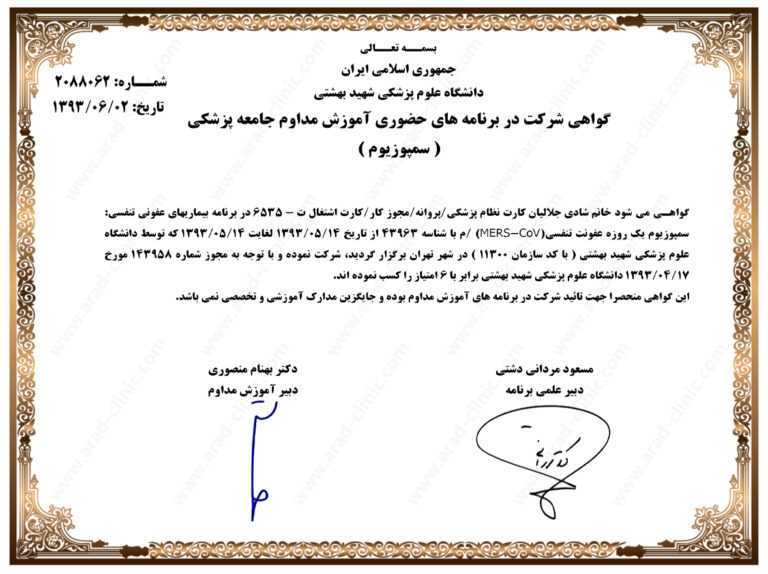 بسمـــه تعـــالی
جمهوری اسلامی ایران
دانشگاه علوم پزشکی شهید بهشتی
شمـــاره: ۲۰۸۸۰۶۲
تاریخ: ۱۳۹۳/۰۶/۰۲
گواهی شرکت در برنامه های حضوری آموزش مداوم جامعه پزشکی
( سمپوزیوم )
گواهـی می شود خانم شادی جلالیان کارت نظام پزشکی/پروانه/مجوز کار/کارت اشتغال ت – ۶۵۳۵ در برنامه بیماریهای عفونی تنفسی:
سمپوزیوم یک روزه عفونت تنفسی(MERS-CoV) /م با شناسه ۴۳۹۶۳ از تاریخ ۱۳۹۳/۰۵/۱۴ لغایت ۱۳۹۳/۰۵/۱۴ که توسط دانشگاه
علوم پزشکی شهید بهشتی ( با کد سازمان ۱۱۳۰۰ ) در شهر تهران برگزار گردید، شرکت نموده و با توجه به مجوز شماره ۱۴۳۹۵۸ مورخ
۱۳۹۳/۰۴/۱۷ دانشگاه علوم پزشکی شهید بهشتی برابر با ۶ امتیاز را کسب نموده اند.
این گواهی منحصرا جهت تائید شرکت در برنامه های آموزش مداوم بوده و جایگزین مدارک آموزشی و تخصصی نمی باشد.
مسعود مردانی دشتی
دبیر علمی برنامه
دکتر بهنام منصوری
دبیر آموزش مداوم
www.arad-clinic.com